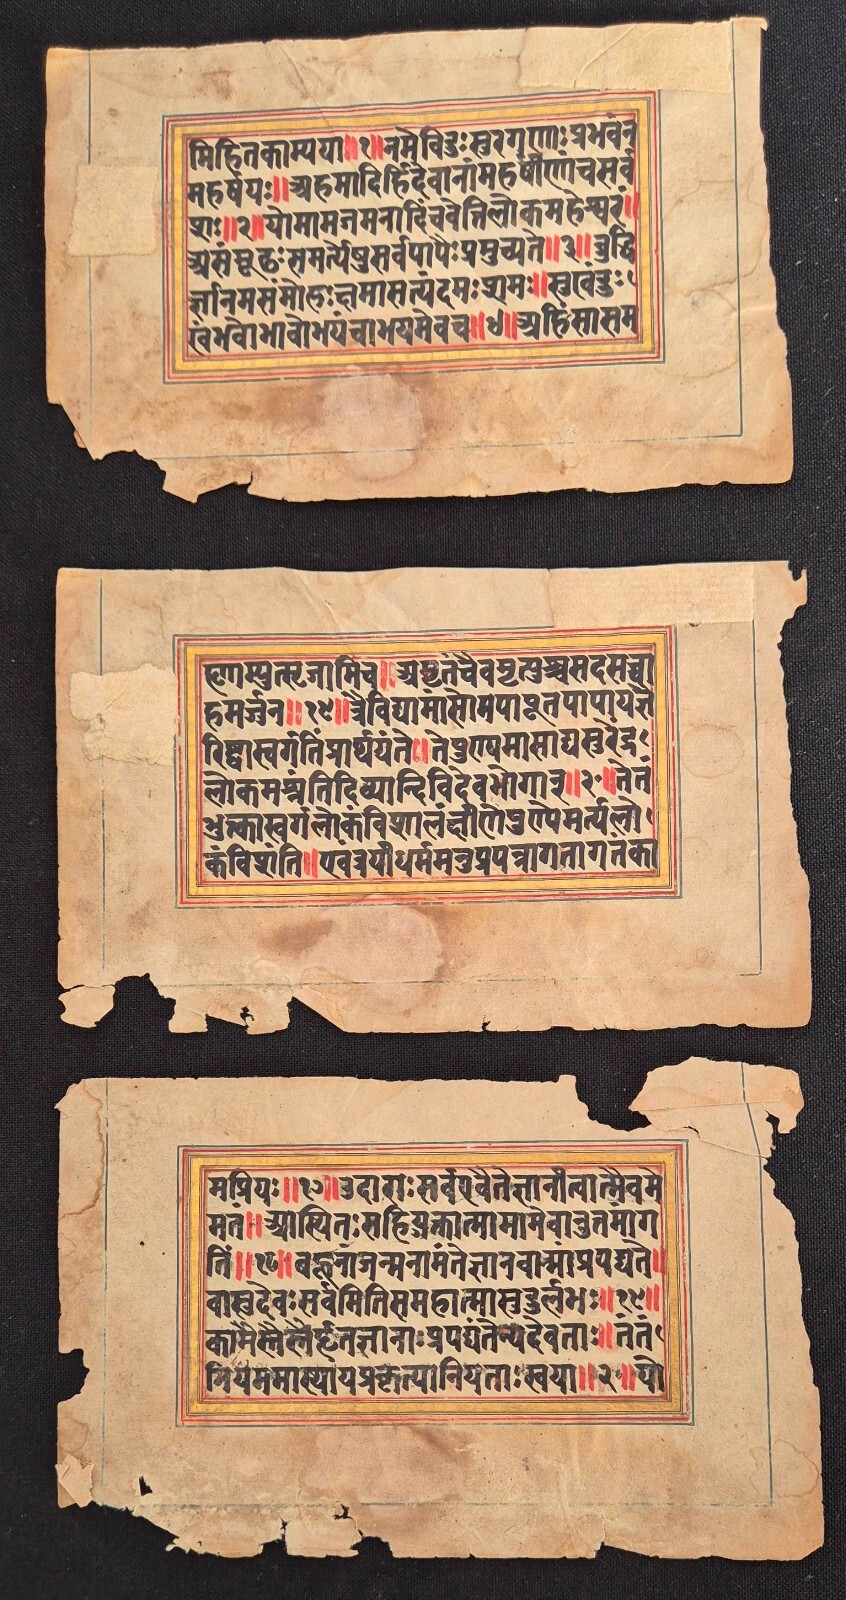 मिहितकाम्यया॥१॥नमेविदुःसुरगणाःप्रभवंन
महर्षयः॥अहमादिर्हिदेवानांमहर्षीणांचसर्व
शः॥२॥योमामजमनादिंचवेत्तिलोकमहेश्वरं॥
असंमूढःसमर्त्येषुसर्वपापैःप्रमुच्यते॥३॥बुद्धि
र्ज्ञानमसंमोहःक्षमासत्यंदमःशमः॥सुखंदुः
खंभवोभावोभयंचाभयमेवच॥४॥अहिंसासम
ह्णाम्युत्सृजामिच॥अमृतंचैवमृत्युश्चसदसच्चा
हमर्जुन॥१९॥त्रैविद्यामांसोमपाःपूतपापायज्ञै
रिष्ट्वास्वर्गतिंप्रार्थयंते॥तेपुण्यमासाद्यसुरेंद्र
लोकमश्नंतिदिव्यान्दिविदेवभोगान्॥२०॥तेतं
भुक्त्वास्वर्गलोकंविशालंक्षीणेपुण्येमर्त्यलो
कंविशंति॥एवंत्रयीधर्ममनुप्रपन्नागतागतंका
मप्रियः॥१७॥उदाराःसर्वएवैतेज्ञानीत्वात्मैवमे
मतं॥आस्थितःसहियुक्तात्मामामेवानुत्तमांग
तिं॥१८॥बहूनांजन्मनामंतेज्ञानवान्मांप्रपद्यते॥
वासुदेवःसर्वमितिसमहात्मासुदुर्लभः॥१९॥
कामैस्तैस्तैर्हृतज्ञानाःप्रपद्यंतेन्यदेवताः॥तंतं
नियममास्थायप्रकृत्यानियताःस्वया॥२०॥यो